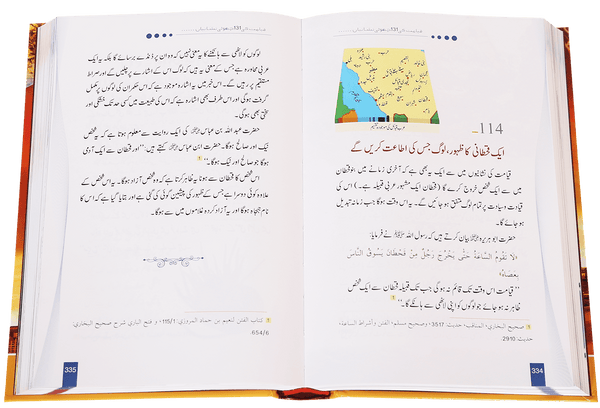 114
ایک قحطانی کا ظہور، لوگ جس کی اطاعت کریں گے
قیامت کی نشانیوں میں سے ایک یہ بھی ہے کہ آخری زمانے میں بنوقحطان
میں سے ایک شخص خروج کرے گا (قحطان ایک مشہور عربی قبیلہ ہے۔) اس کی
قیادت و سیادت پر تمام لوگ متفق ہو جائیں گے۔ یہ اس وقت ہوگا جب زمانہ تبدیل
ہو جائے گا۔
حضرت ابو ہریرہ بیان کرتے ہیں کہ رسول اللہ ﷺ نے فرمایا:
«لَا تَقُومُ السَّاعَةُ حَتَّى يَخْرُجَ رَجُلٌ مِنْ قَحْطَانَ يَسُوقُ النَّاسَ
بِعَصَاهُ»
”قیامت اس وقت تک قائم نہ ہوگی جب تک قبیلہ قحطان سے ایک شخص
ظاہر نہ ہو جائے جو لوگوں کو اپنی لاٹھی سے ہانکے گا۔“ 1
1 صحيح البخاري، المناقب، حديث: 3517، و صحيح مسلم، الفتن وأشراط الساعة،
حديث: 2910.
334
لوگوں کو لاٹھی سے ہانکنے کا یہ معنی نہیں کہ وہ ان پر ڈنڈے برسائے گا بلکہ یہ ایک
عربی محاورہ ہے جس کے معنی یہ ہیں کہ لوگ اس کے اشارے پر چلیں گے اور صراط
مستقیم پر رہیں گے۔ اس خبر میں یہ اشارہ موجود ہے کہ اس حکمران کی لوگوں پر مکمل
گرفت ہوگی اور اس طرف بھی اشارہ ہے کہ اس کی طبیعت میں کسی حد تک خشکی اور
سختی بھی ہوگی۔
حضرت عبد اللہ بن عباس کی ایک روایت سے معلوم ہوتا ہے کہ یہ شخص
نیک اور صالح ہوگا۔ حضرت ابن عباس کہتے ہیں: ”اور قحطان سے ایک آدمی
ہوگا جو صالح اور نیک ہوگا۔“ 1
اس شخص کا قحطان سے ہونا یہ ظاہر کرتا ہے کہ وہ شخص آزاد ہوگا۔ یہ اس شخص کے
علاوہ کوئی دوسرا ہے جس کے ظہور کی پیشین گوئی کی گئی ہے اور بتایا گیا ہے کہ اس کا
نام جہجاہ ہوگا اور یہ کہ آزاد کردہ غلاموں میں سے ہوگا۔
1 كتاب الفتن لنعيم بن حماد المروزي: 115/1، و فتح الباري شرح صحيح البخاري:
654/6.
335